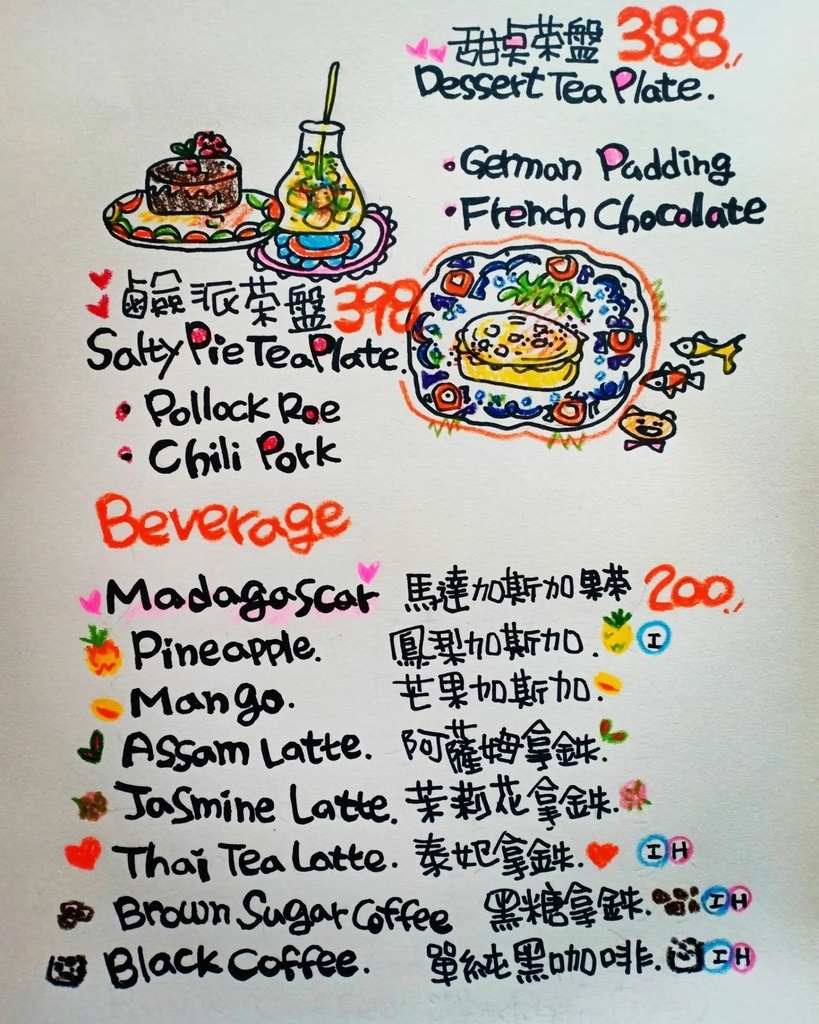 甜桌茶盤 388
Dessert Tea Plate.
• German Padding
• French Chocolate
鹹派茶盤 398
Salty Pie Tea Plate.
• Pollock Roe
• Chili Pork
Beverage
Madagascar 馬達加斯加果茶 200
Pineapple. 鳳梨加斯加. I
Mango. 芒果加斯加.
Assam Latte. 阿薩姆拿鉄.
Jasmine Latte. 茉莉花拿鉄.
Thai Tea Latte. 泰妃拿鉄. I H
Brown Sugar Coffee 黑糖拿鉄. I H
Black Coffee. 單純黑咖啡. I H